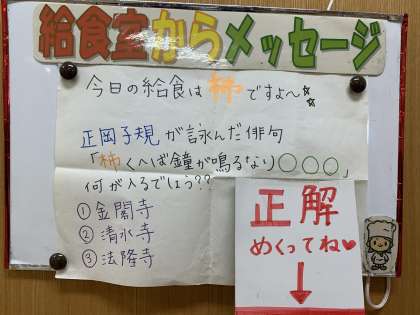 給食室からメッセージ
今日の給食は柿ですよ～☆☆
正岡子規が詠んだ俳句
「柿くへば鐘が鳴るなり〇〇〇」
何が入るでしょう??
①金閣寺
②清水寺
③法隆寺
正解
めくってね♥
↓